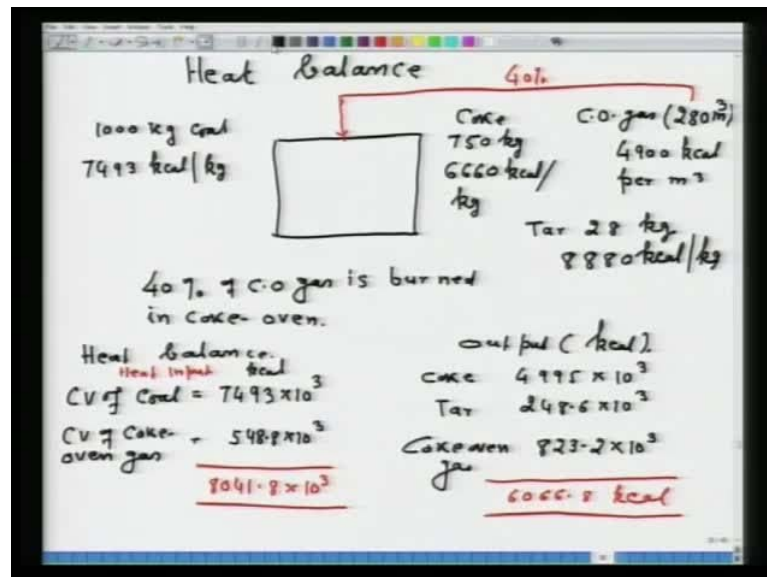 Heat balance
40%
1000 kg coal
7493 kcal/kg
Coke
750 kg
6660 kcal/
kg
C.O. gas (280 m³)
4900 kcal
per m³
Tar 28 kg
8880 kcal/kg
40 % of C.O gas is burned
in coke-oven.
Heat balance.
Heat Input kcal
CV of Coal = 7493×10³
CV of Coke- = 548.8×10³
oven gas
8041.8×10³
output (kcal).
Coke 4995×10³
Tar 248.6×10³
Coke oven 823.2×10³
gas
6066.8 kcal